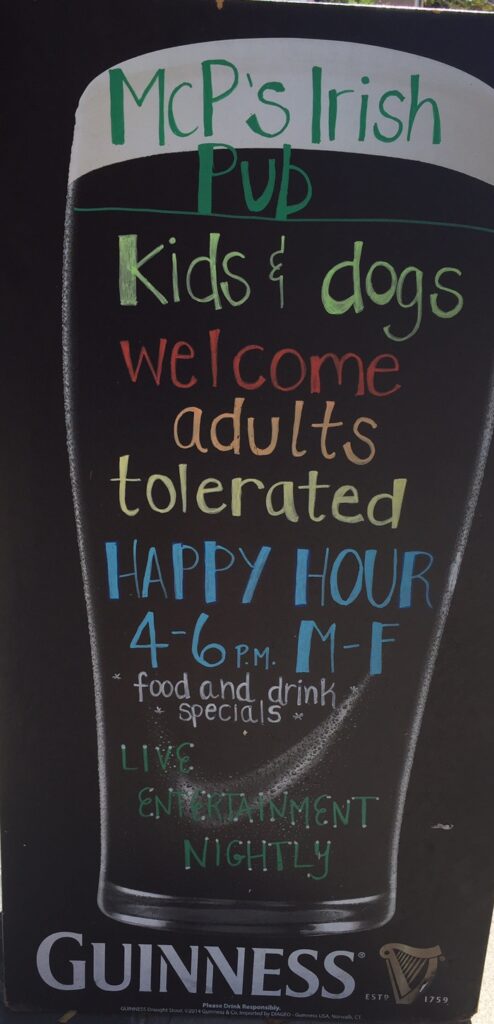 McP's Irish
Pub
Kids & dogs
welcome
adults
tolerated
HAPPY HOUR
4-6 P.M. M-F
*food and drink*
*specials*
LIVE
ENTERTAINMENT
NIGHTLY
GUINNESS®
ESTD 1759
Please Drink Responsibly.
GUINNESS Draught Stout. ©2014 Guinness & Co. Imported by DIAGEO - Guinness USA, Norwalk, CT.